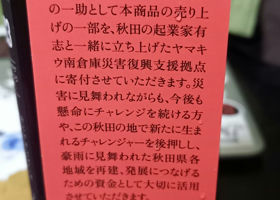 の一助として本商品の売り上
げの一部を、秋田の起業家有
志と一緒に立ち上げたヤマキ
ウ南倉庫災害復興支援拠点
に寄付させていただきます。災
害に見舞われながらも、今後も
懸命にチャレンジを続ける方
や、この秋田の地で新たに生ま
れるチャレンジャーを後押しし、
豪雨に見舞われた秋田県各
地域を再建、発展につなげる
ための資金として大切に活用
させていただきます。